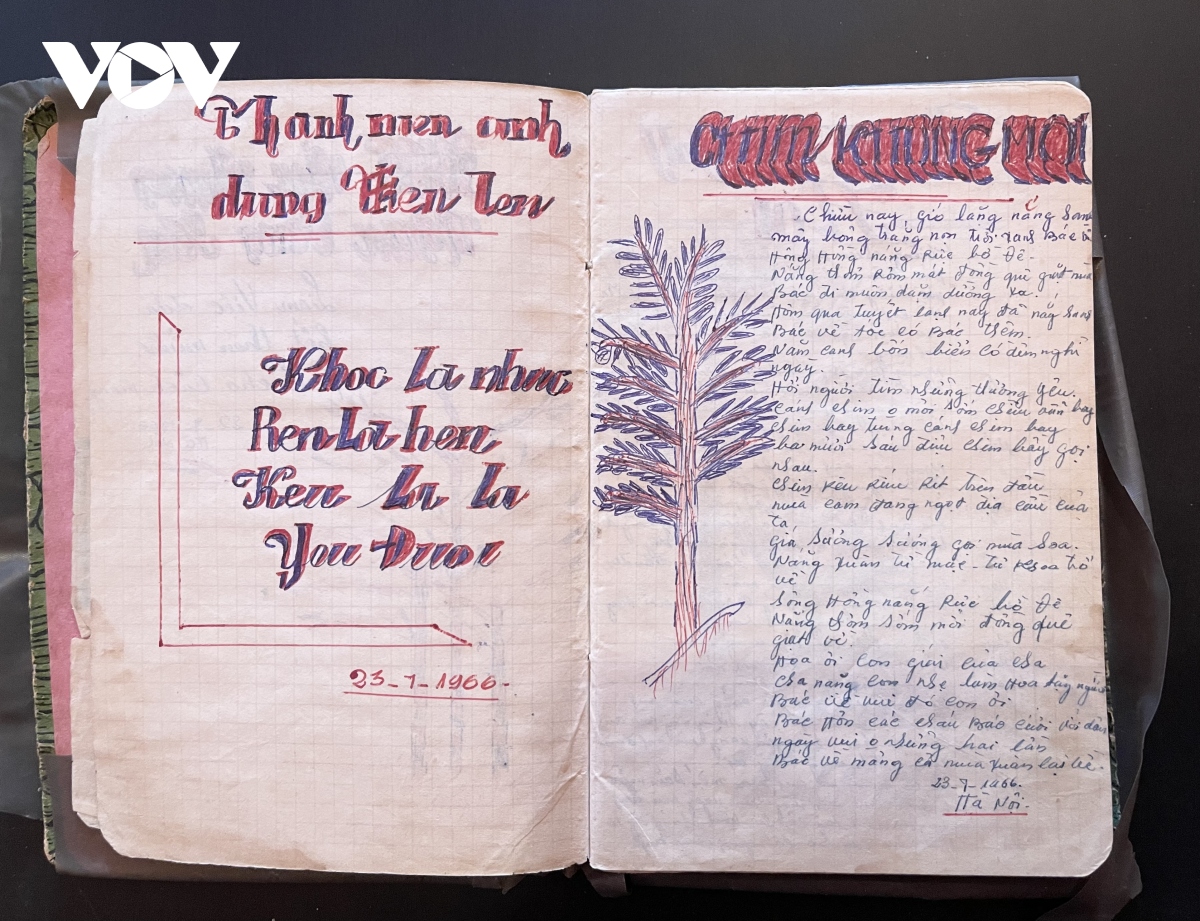 VOV
Thanh nien anh
dung Tien len
Khoc la nhuc
Ren la hen
Keu la la
You Duoi
23-7-1966-
CHIM KHUNG MOI
Chiều nay gió lặng nắng
mây bông trắng non trời xanh Bác
Hồng nắng Rực bờ Đê.
Nắng thơm Rơm mát đồng quê gặt mùa
Bác đi muôn dặm đường xa.
Hôm qua tuyết lạnh nay đã nắng
Bác về tóc có Bạc thêm
Năm canh bốn biển có đêm nghĩ
ngày.
Hỏi người tim những thương yêu.
cánh chim mỏi sớm chiều vẫn bay
chim bay từng cánh chim bay
ba mươi sáu đầu chim bầy gọi
nhau.
chim kêu Ríu Rít trên đầu
mưa cam đang ngọt địa cầu của
Ta
giá sương sương gọi mùa
Nắng xuân từ Mạc-tư-khoa trở
về
Sông Hồng nắng Rực bờ Đê
Nắng thơm sớm mời đồng quê
giặt về.
Họa ơi con gái của cha
Cha nâng con nhẹ làm Hoa
Bác về vui đó con ơi
Bác Hôn các cháu Bác cười với dân
ngày vui những hai lần
Bác về mang cả mùa xuân lại về.
23-7-1966.
Hà Nội.